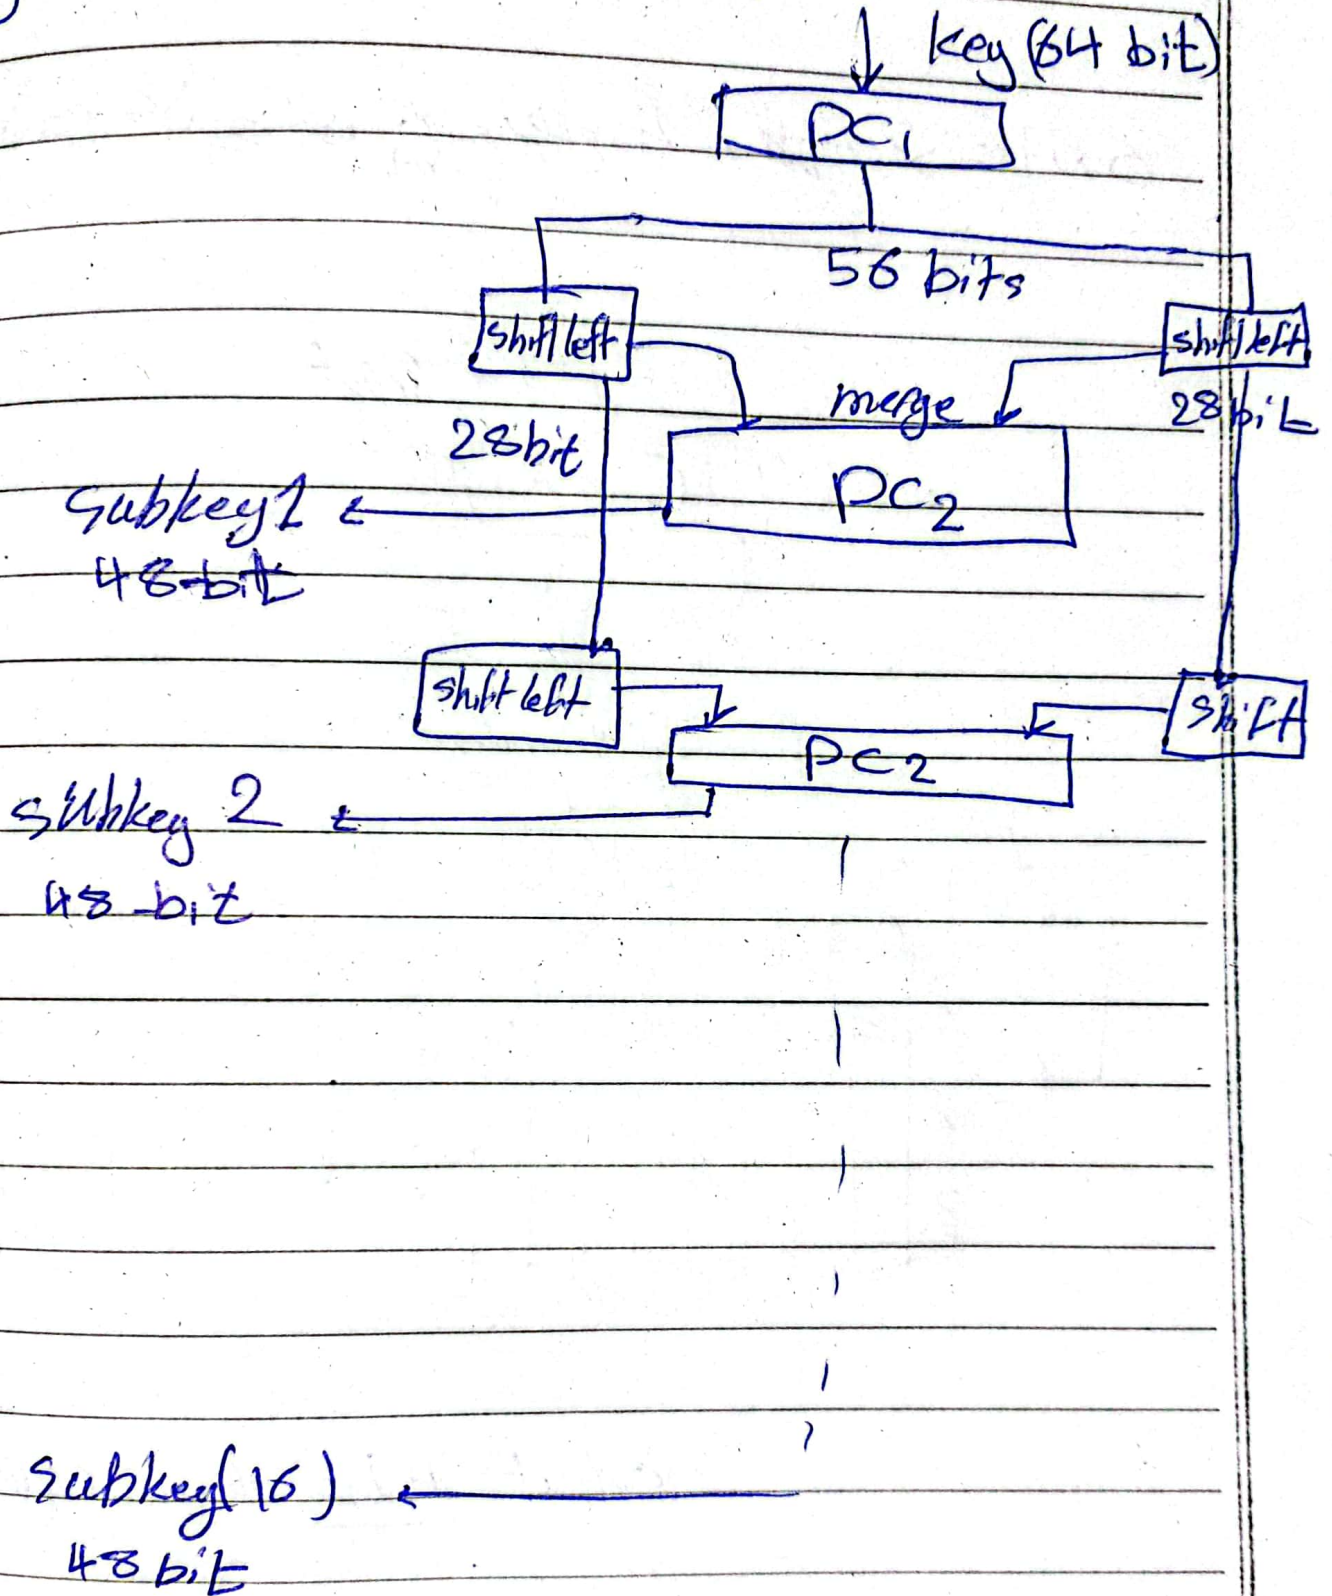 key (64 bit)
PC1
56 bits
shift left
shift left
merge
28 bit
28 bit
PC2
subkey 1
48-bit
shift left
shift
PC2
subkey 2
48-bit
subkey(16)
48 bit